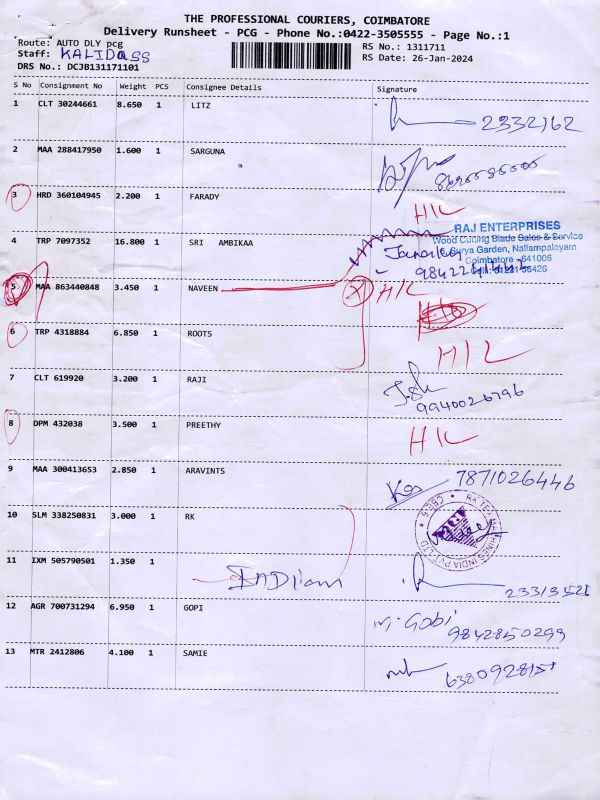 THE PROFESSIONAL COURIERS, COIMBATORE
Delivery Runsheet - PCG - Phone No.:0422-3505555 - Page No.:1
Route: AUTO DLY pcg RS No.: 1311711
Staff: KALIDASS RS Date: 26-Jan-2024
DRS No.: DCJB131171101
S No Consignment No Weight PCS Consignee Details Signature
1 CLT 30244661 8.650 1 LITZ 2332162
2 MAA 288417950 1.600 1 SARGUNA
3 HRD 360104945 2.200 1 FARADY H/L
RAJ ENTERPRISES
Wood Cutting Blade Sales & Service
4 TRP 7097352 16.800 1 SRI AMBIKAA
Surya Garden, Nallampalayam
Coimbatore - 641006
5 MAA 863440848 3.450 1 NAVEEN H/L
6 TRP 4318884 6.850 1 ROOTS H/L
7 CLT 619920 3.200 1 RAJI
9940026796
8 DPM 432038 3.500 1 PREETHY H/L
9 MAA 300413653 2.850 1 ARAVINTS 7871026446
10 SLM 338250831 3.000 1 RK
11 IXM 505790501 1.350 1
12 AGR 700731294 6.950 1 GOPI M. Gobi
9842850299
13 MTR 2412806 4.100 1 SAMIE